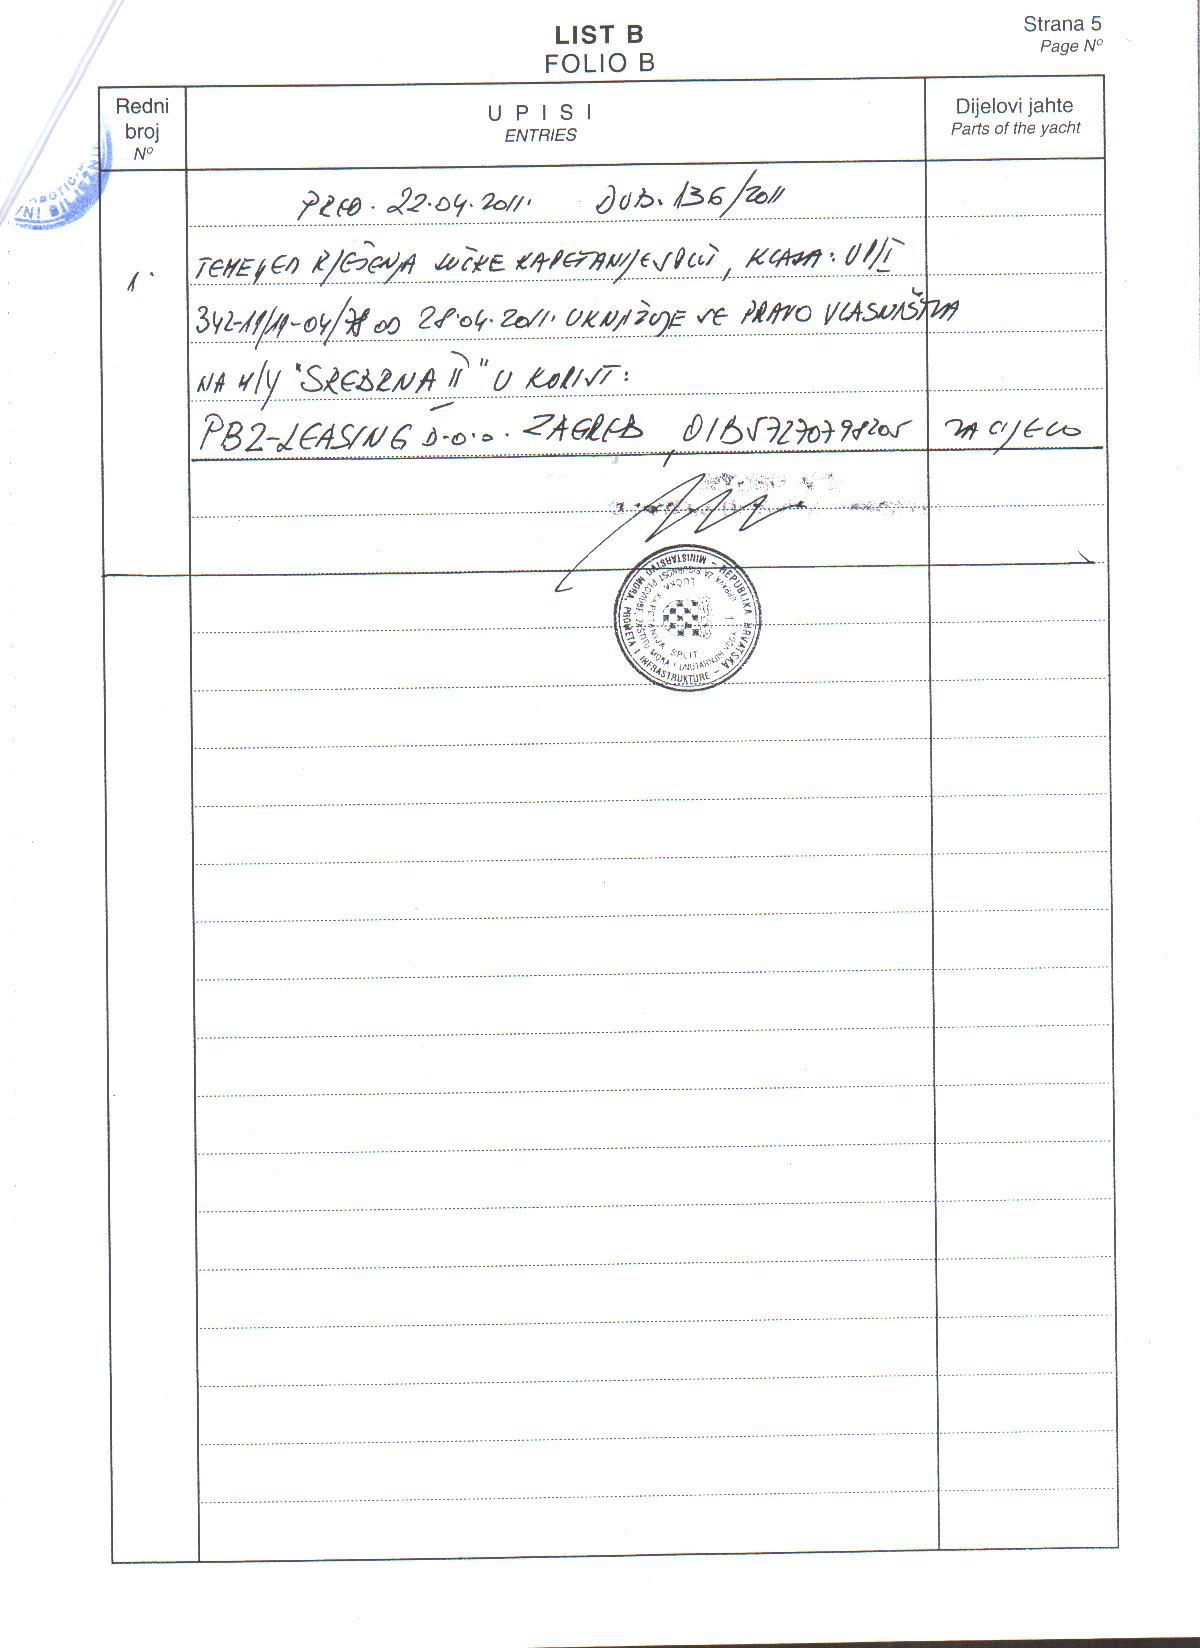 LIST B
FOLIO B
Strana 5
Page Nº
Redni broj
Nº
U P I S I
ENTRIES
Dijelovi jahte
Parts of the yacht
PRED. 22.04.2011. DUB. 136/2011
1.
TEMELJEM RJEŠENJA LUČKE KAPETANIJE SPLIT, KLASA: UP/I
342-19/11-04/78 OD 28.04.2011. UKNJIŽUJE SE PRAVO VLASNIŠTVA
NA M/Y "SREBRNA II" U KORIST:
PBZ-LEASING D.O.O. ZAGREB, OIB 57270798205 ZA CIJELO
REPUBLIKA HRVATSKA – MINISTARSTVO MORA, PROMETA I INFRASTRUKTURE –
UPRAVA ZA SIGURNOST PLOVIDBE, ZAŠTITU MORA I UNUTARNJIH VODA
LUČKA KAPETANIJA SPLIT
1